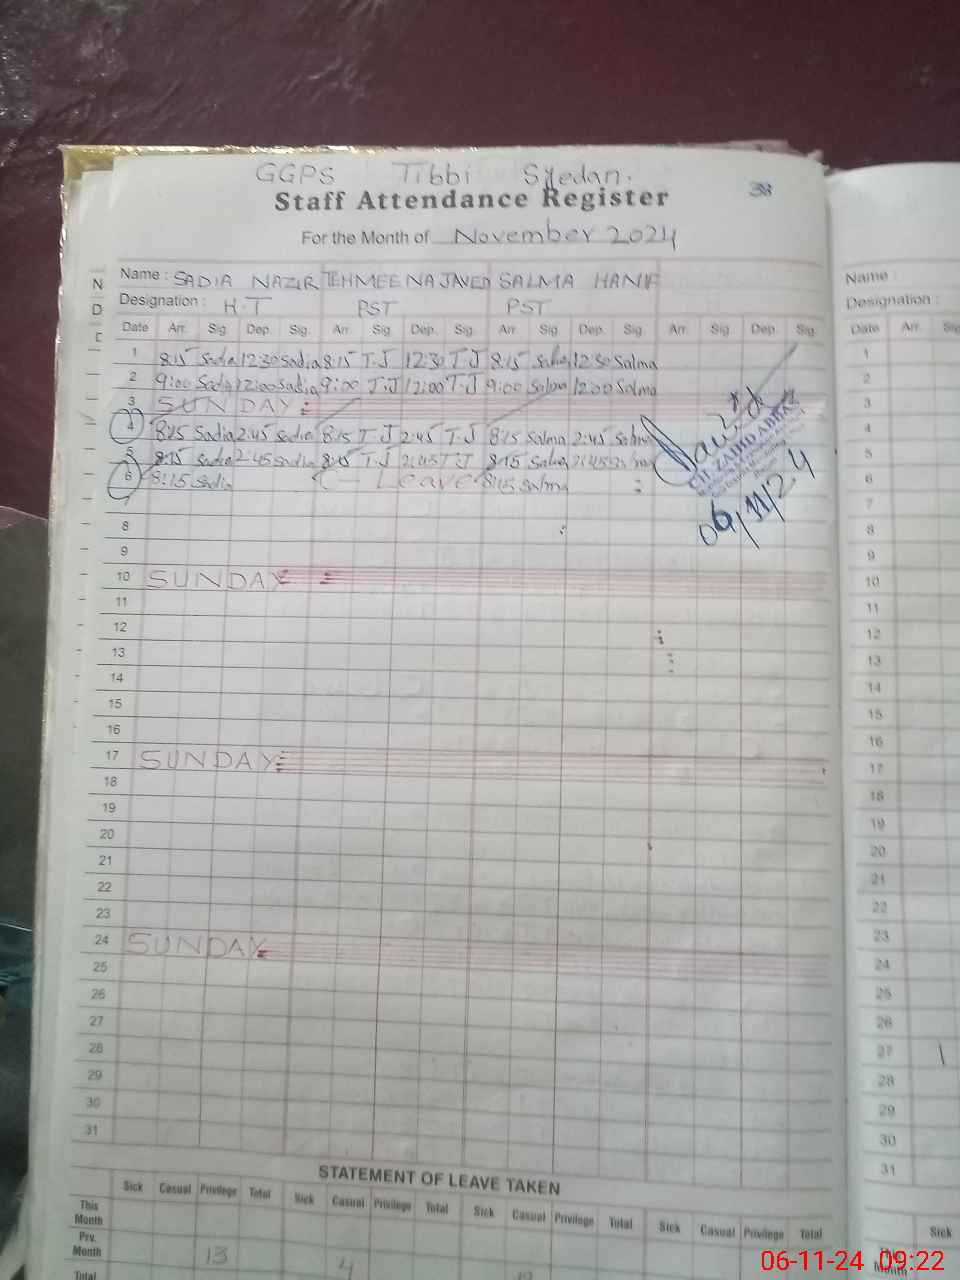 GGPS Tibbi Syedan.
Staff Attendance Register
38
For the Month of November 2024
Name : SADIA NAZIR TEHMEENA JAVED SALMA HANIF
Designation : H.T PST PST
Date Arr. Sig. Dep. Sig. Arr. Sig. Dep. Sig. Arr. Sig. Dep. Sig. Arr. Sig. Dep. Sig.
1 8:15 Sadia 12:30 Sadia 8:15 T.J 12:30 T.J 8:15 Salma 12:30 Salma
2 9:00 Sadia 12:00 Sadia 9:00 T.J 12:00 T.J 9:00 Salma 12:00 Salma
3 SUNDAY
4 8:15 Sadia 2:45 Sadia 8:15 T.J 2:45 T.J 8:15 Salma 2:45 Salma
5 8:15 Sadia 2:45 Sadia 8:15 T.J 2:45 T.J 8:15 Salma 2:45 Salma
6 8:15 Sadia C - Leave 8:15 Salma
CH. ZAHID ABBAS
06/11/24
8
9
10 SUNDAY
11
12
13
14
15
16
17 SUNDAY
18
19
20
21
22
23
24 SUNDAY
25
26
27
28
29
30
31
STATEMENT OF LEAVE TAKEN
Sick Casual Privilege Total Sick Casual Privilege Total Sick Casual Privilege Total Sick Casual Privilege Total
This Month
Prv. Month 13 4
Total
Name
Designation :
Date Arr. Sig
1
2
3
4
5
6
7
8
9
10
11
12
13
14
15
16
17
18
19
20
21
22
23
24
25
26
27
28
29
30
31
Sick
This Month
06-11-24 09:22